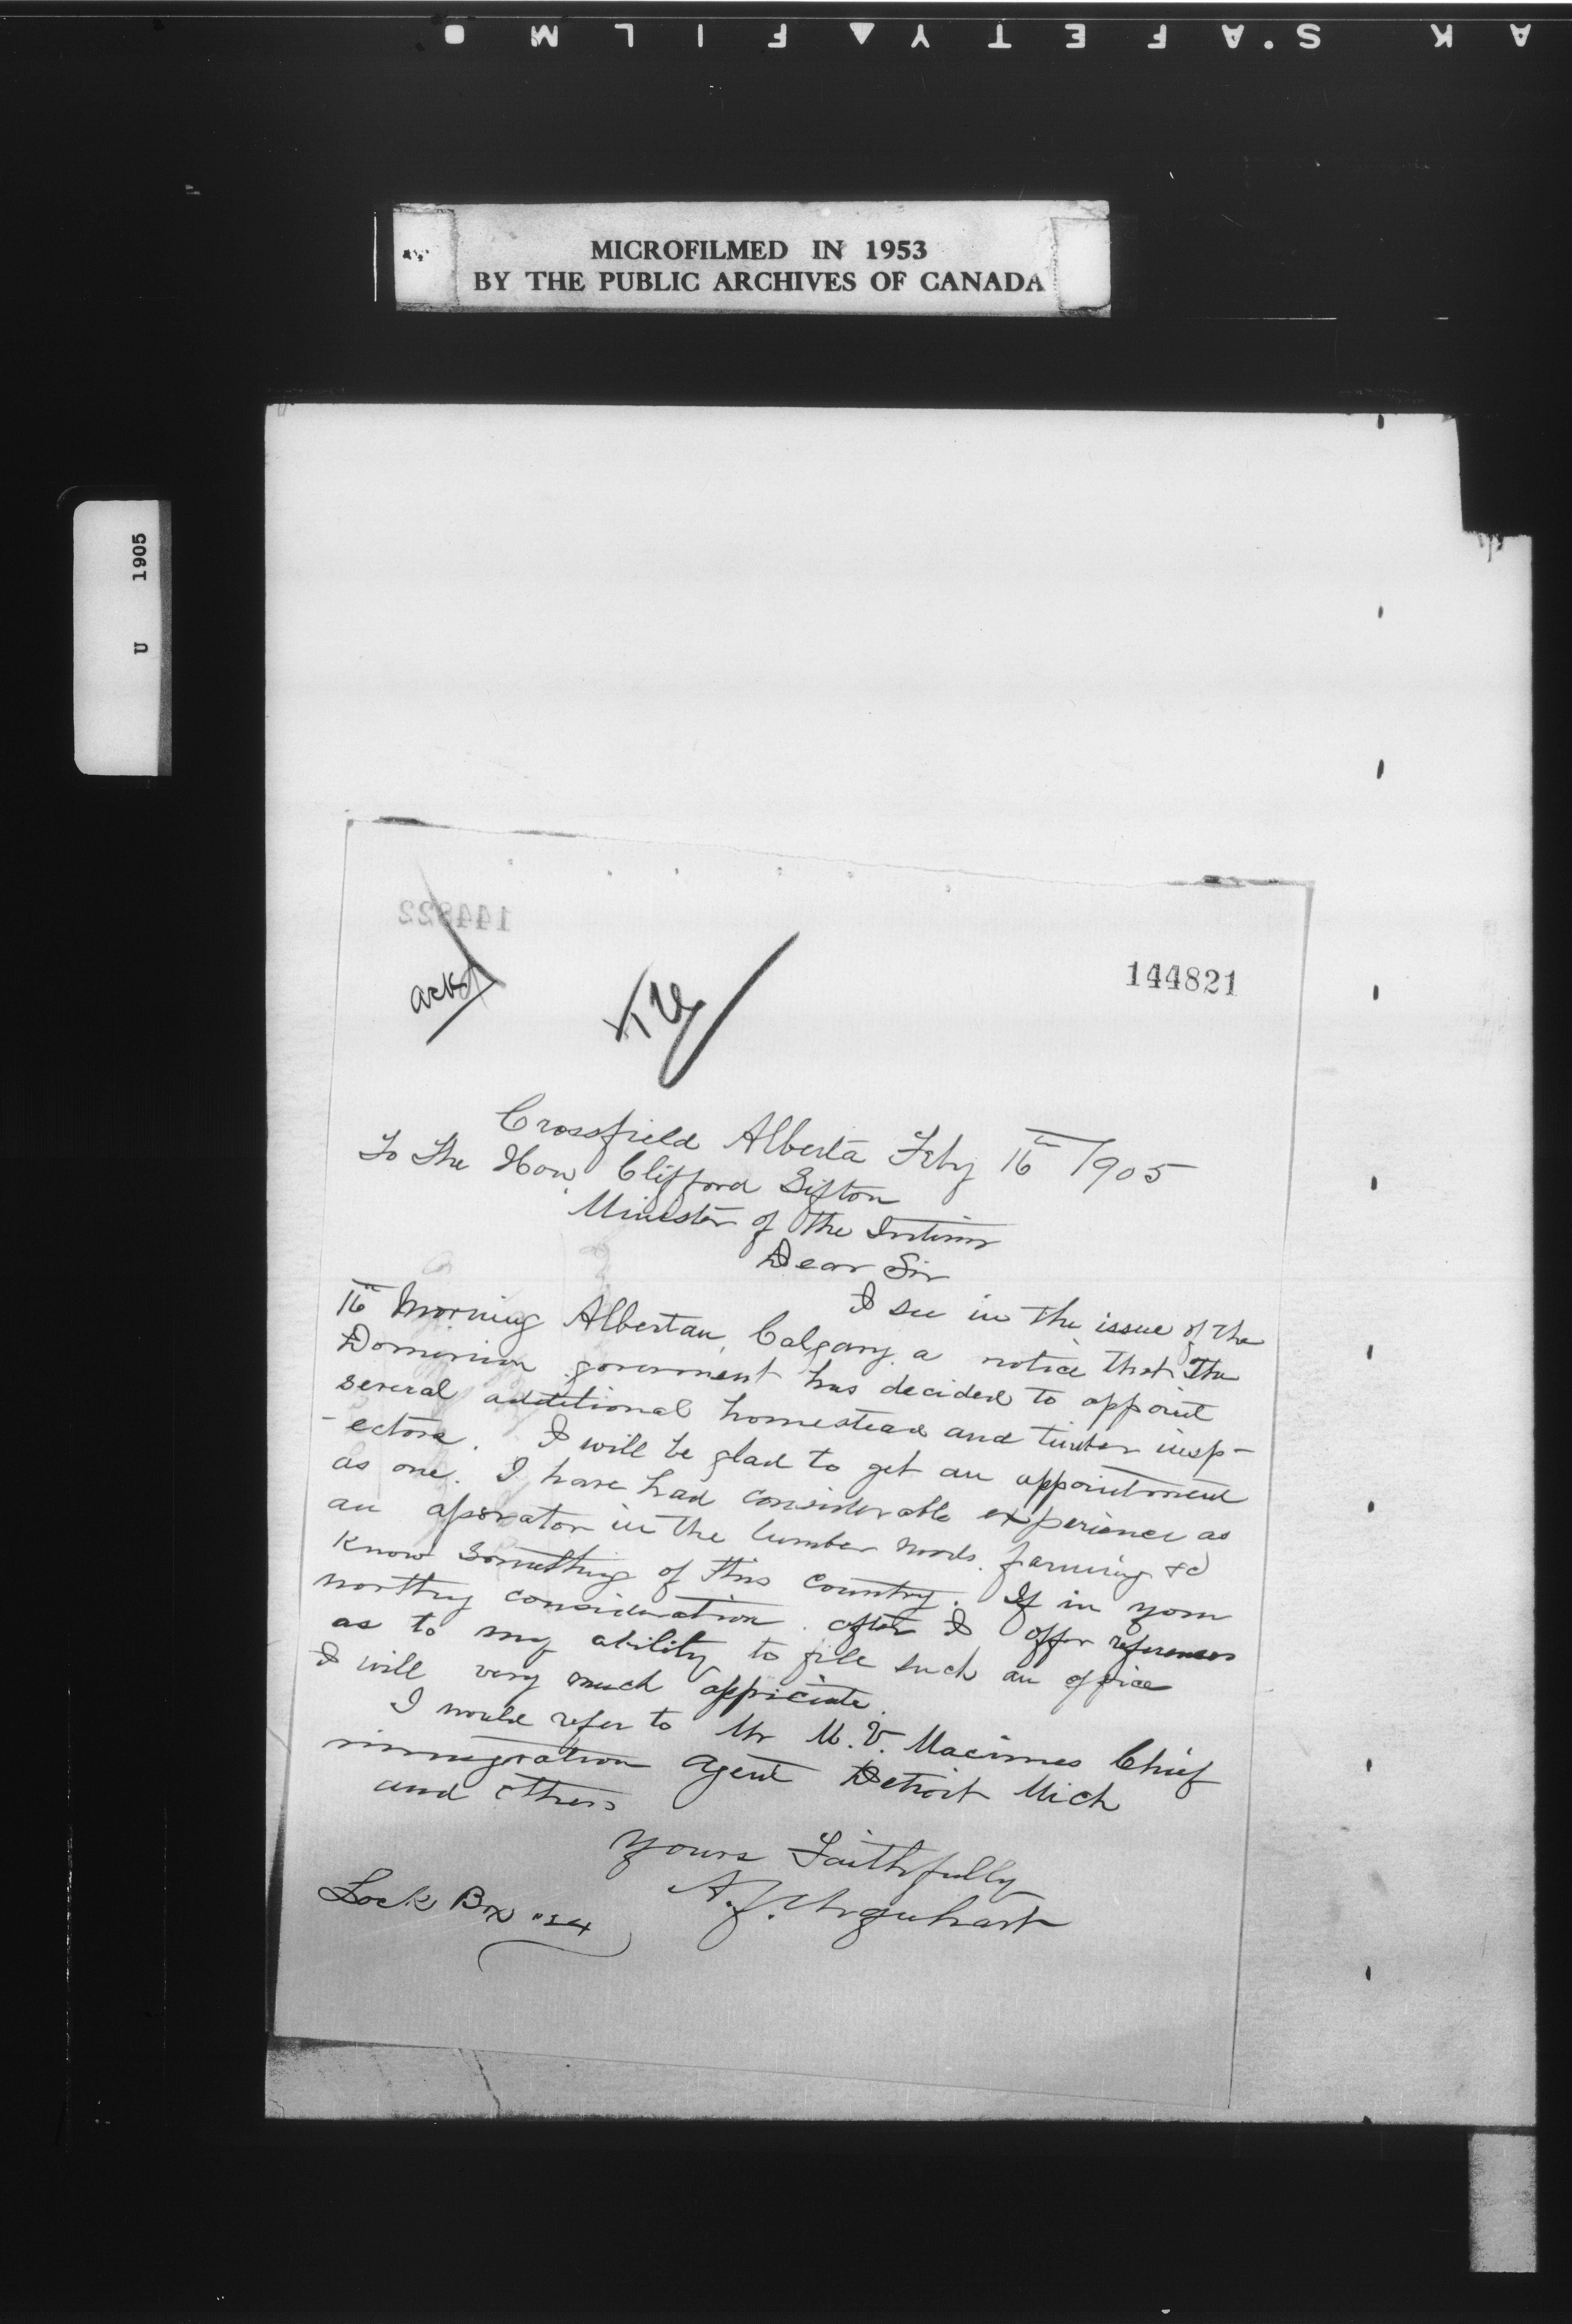 A K S'A F E T Y F I L M
MICROFILMED IN 1953
BY THE PUBLIC ARCHIVES OF CANADA
U 1905
144822
ackd
144821
Crossfield Alberta Feby 16th 1905
To The Hon. Clifford Sifton
Minister of the Interior
Dear Sir
I see in the issue of the
16th Morning Albertan, Calgary. a notice that the
Dominion government has decided to appoint
several additional homestead and timber insp-
-ectors. I will be glad to get an appointment
as one. I have had considerable experience as
an aporator in the lumber woods. farming &c
Know something of this country. If in your
worthy consideration. after I offer references
as to my ability to fill such an office
I will very much appriciate.
I would refer to Mr M. V. Macinnes Chief
immigration agent Detroit Mich
and others
Yours Faithfully
A. J. Urquhart
Lock Box "24